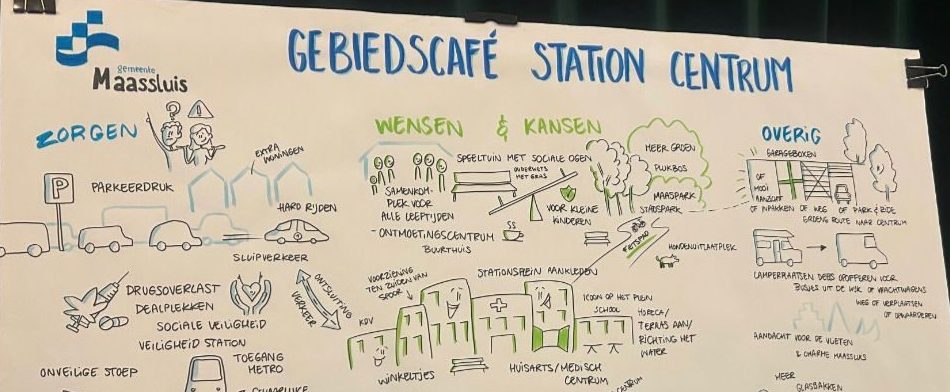 gemeente
Maassluis
GEBIEDSCAFÉ STATION CENTRUM
ZORGEN
?
!
EXTRA
WONINGEN
P
PARKEERDRUK
HARD RIJDEN
SLUIPVERKEER
ONTSLUITING
VERKEER
DRUGSOVERLAST
DEALPLEKKEN
SOCIALE VEILIGHEID
VEILIGHEID STATION
ONVEILIGE STOEP
TOEGANG
METRO
WENSEN & KANSEN
SAMENKOM-
PLEK VOOR
ALLE LEEFTIJDEN
- ONTMOETINGSCENTRUM
BUURTHUIS
SPEELTUIN MET SOCIALE OGEN
MET GRAS
VOOR KLEINE
KINDEREN
MEER GROEN
PLUKBOS
MAASPARK
STADSPARK
FIETSPAD
HONDENUITLAATPLEK
STATIONSPLEIN AANKLEDEN
VOORZIENING
TEN ZUIDEN VAN
SPOOR
KDV
WINKELTJES
HUISARTS/MEDISCH
CENTRUM
ICOON OP HET PLEIN
SCHOOL
HORECA/
TERRAS AAN/
RICHTING HET
WATER
CENTRUM
OVERIG
GARAGEBOXEN
OF
MOOI
AANZICHT
OF INPAKKEN OF WEG OF PARK & RIDE
GROENE ROUTE NAAR CENTRUM
CAMPERPLAATSEN DEELS OPOFFEREN VOOR
BUSJES UIT DE WIJK OF VRACHTWAGENS
WEG OF VERPLAATSEN
OF OPWAARDEREN
AANDACHT VOOR DE VLIETEN
& CHARME MAASSLUIS
MEER
GLASBAKKEN